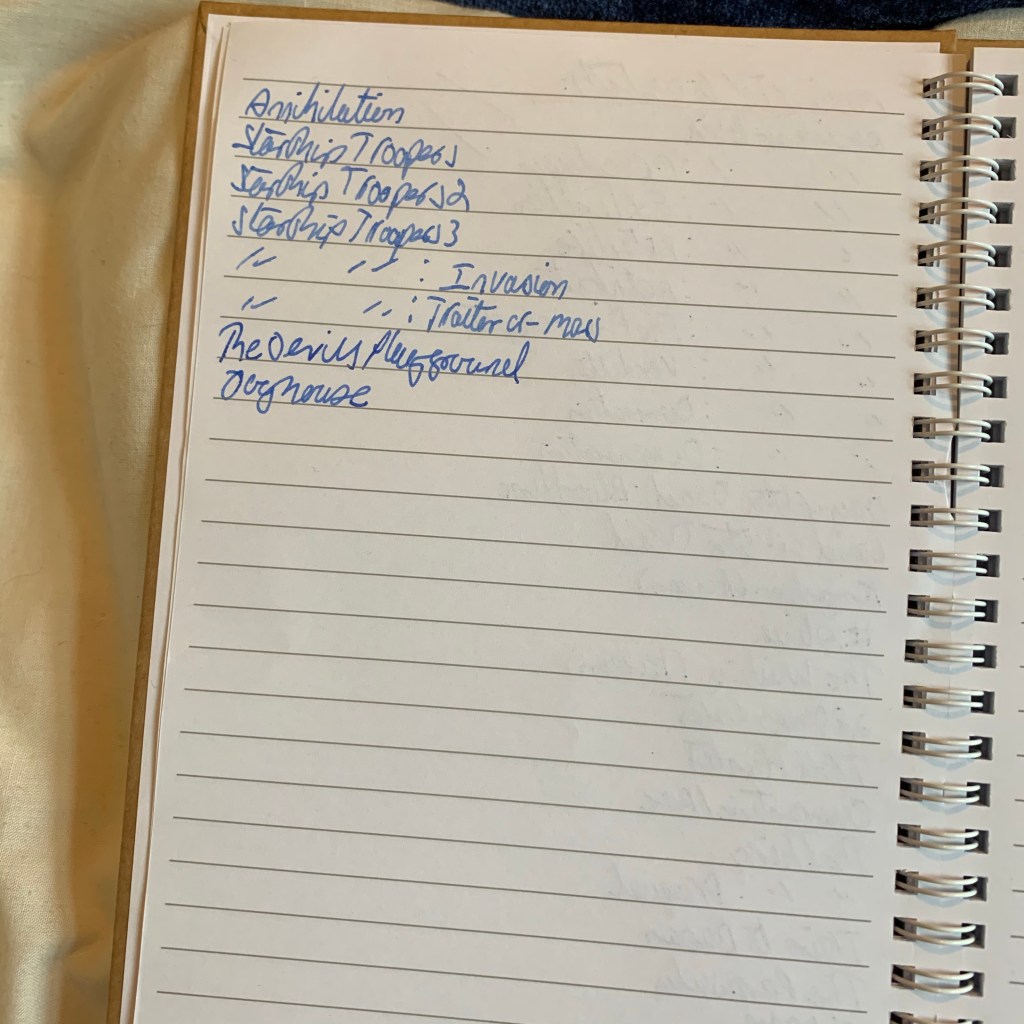 Anihilation
Starship Troopers
Starship Troopers 2
Starship Troopers 3
" " : Invasion
" " : Traitor of mars
The Devils Playground
Doghouse